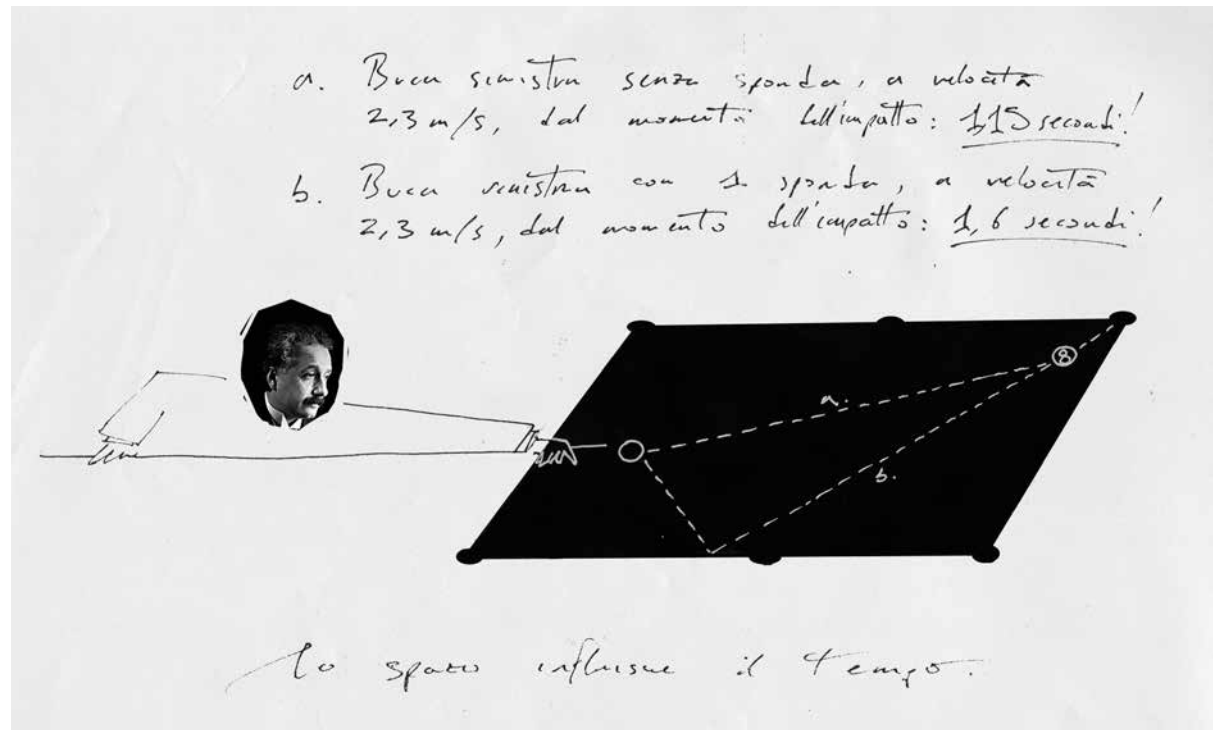 a. Buca sinistra senza sponda, a velocità
2,3 m/s, dal momento dell'impatto: 1,15 secondi!
b. Buca sinistra con 1 sponda, a velocità
2,3 m/s, dal momento dell'impatto: 1,6 secondi!
8
a.
b.
lo spazio influisce il tempo.